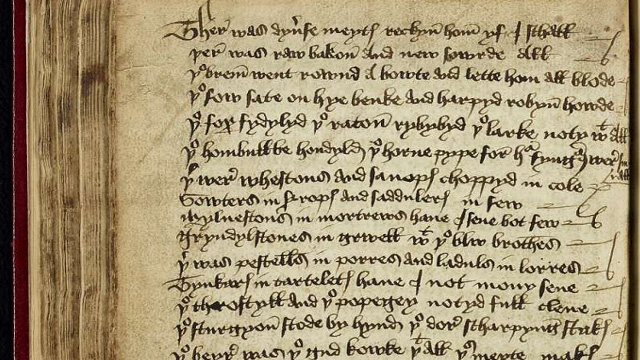 Ther was dyuse meytis rechyn hom yf I schall
þer was raw bakon and new sowrde all
þe brem went rownd a bowte and lette hom all blode
þe sow sate on hye benke and harpyd robyn howde
þe fox fydylyd þe raton rybybyd þe larke notyd wt all
þe hombull be hondyld þe horne pype for hr fyngurs wer small
þer wer whestons and sanops choppyd in cole
Sowters in sirops and saddulers in sew
Mylnestons in mortrews haue I sene bot few
Gryndylstones in grwell wt þe blw brothes
þer was pestells in porres and laduls in lorres
Tynkurs in tartelets haue I not mony sene
þe throstyll and þe popegey notyd full clene
þe sturgyon stode by hynd þe dore scharpyng stakis
þe heyrr was þe gud kowke þt all þe meyte makis